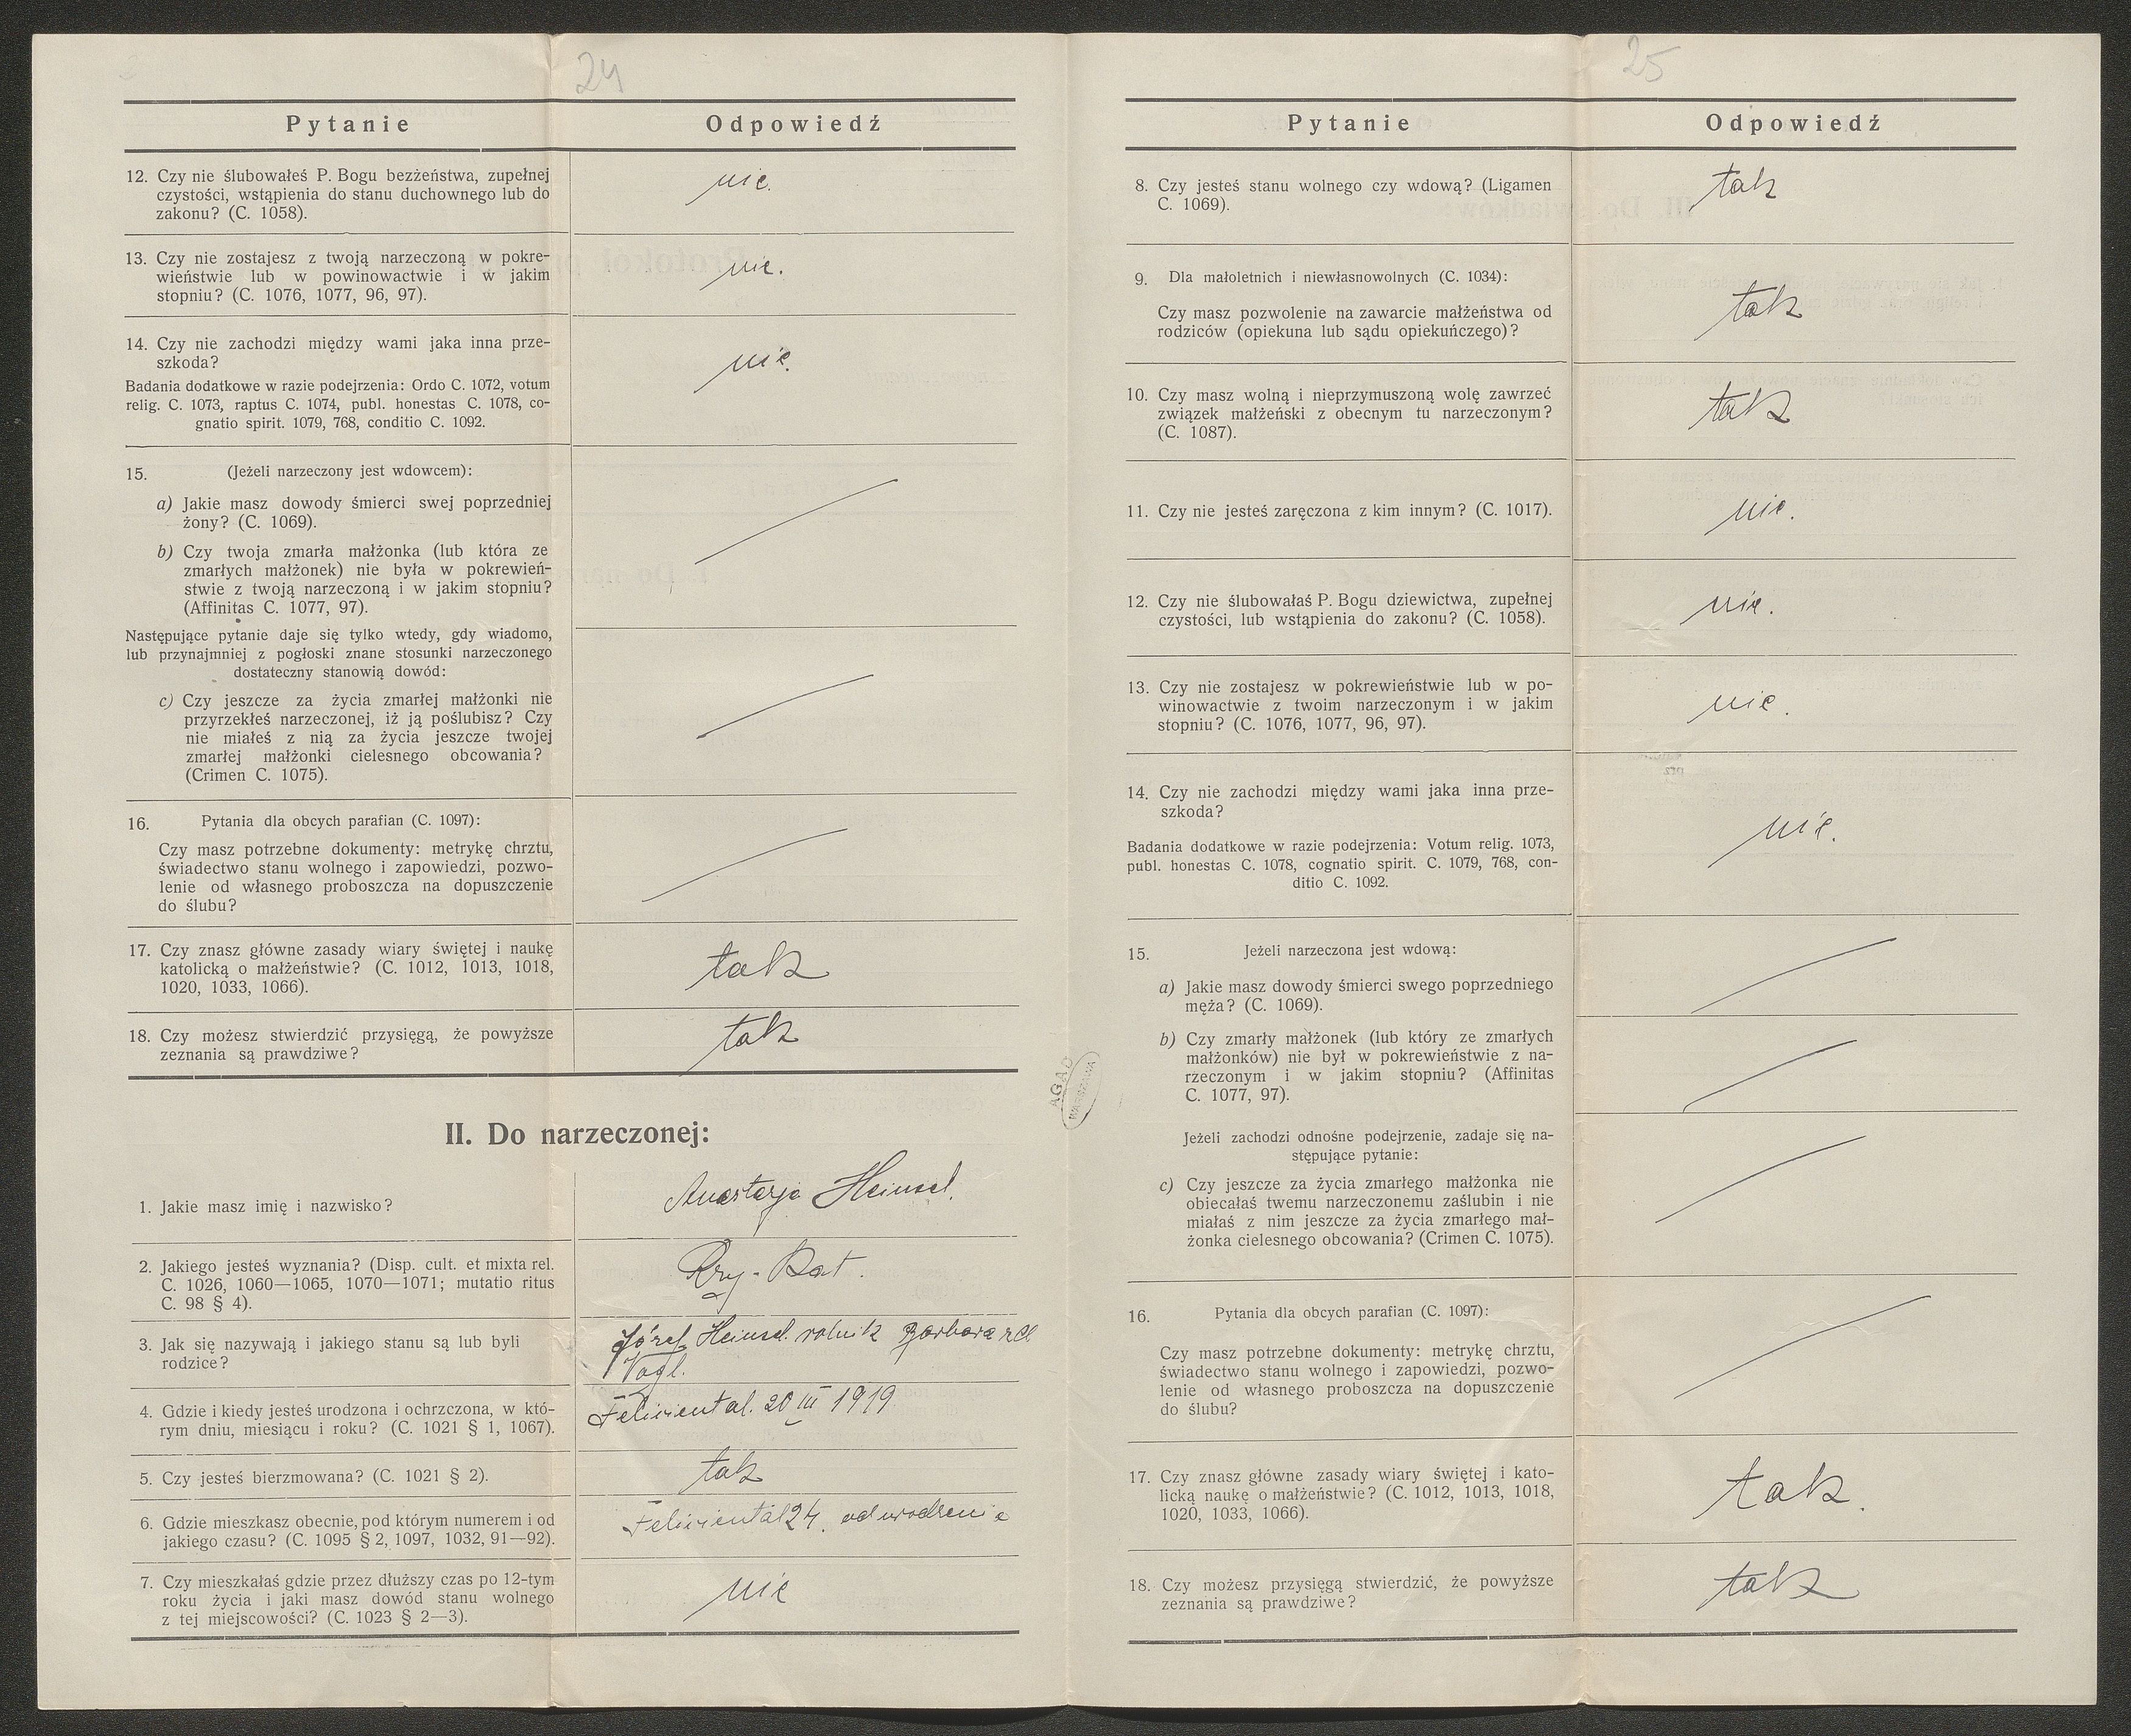 24
Pytanie Odpowiedź
12. Czy nie ślubowałeś P. Bogu bezżeństwa, zupełnej
czystości, wstąpienia do stanu duchownego lub do
zakonu? (C. 1058).
nie.
13. Czy nie zostajesz z twoją narzeczoną w pokre-
wieństwie lub w powinowactwie i w jakim
stopniu? (C. 1076, 1077, 96, 97).
nie.
14. Czy nie zachodzi między wami jaka inna prze-
szkoda?
Badania dodatkowe w razie podejrzenia: Ordo C. 1072, votum
relig. C. 1073, raptus C. 1074, publ. honestas C. 1078, co-
gnatio spirit. 1079, 768, conditio C. 1092.
nie.
15. (Jeżeli narzeczony jest wdowcem):
a) Jakie masz dowody śmierci swej poprzedniej
żony? (C. 1069).
b) Czy twoja zmarła małżonka (lub która ze
zmarłych małżonek) nie była w pokrewień-
stwie z twoją narzeczoną i w jakim stopniu?
(Affinitas C. 1077, 97).
Następujące pytanie daje się tylko wtedy, gdy wiadomo,
lub przynajmniej z pogłoski znane stosunki narzeczonego
dostateczny stanowią dowód:
c) Czy jeszcze za życia zmarłej małżonki nie
przyrzekłeś narzeczonej, iż ją poślubisz? Czy
nie miałeś z nią za życia jeszcze twojej
zmarłej małżonki cielesnego obcowania?
(Crimen C. 1075).
16. Pytania dla obcych parafian (C. 1097):
Czy masz potrzebne dokumenty: metrykę chrztu,
świadectwo stanu wolnego i zapowiedzi, pozwo-
lenie od własnego proboszcza na dopuszczenie
do ślubu?
17. Czy znasz główne zasady wiary świętej i naukę
katolicką o małżeństwie? (C. 1012, 1013, 1018,
1020, 1033, 1066).
tak
18. Czy możesz stwierdzić przysięgą, że powyższe
zeznania są prawdziwe?
tak
II. Do narzeczonej:
1. Jakie masz imię i nazwisko?
Anastazja Heinsel.
2. Jakiego jesteś wyznania? (Disp. cult. et mixta rel.
C. 1026, 1060—1065, 1070—1071; mutatio ritus
C. 98 § 4).
Rzy-Kat.
3. Jak się nazywają i jakiego stanu są lub byli
rodzice?
Józef Heinsel. rolnik Barbara zd
Vogl.
4. Gdzie i kiedy jesteś urodzona i ochrzczona, w któ-
rym dniu, miesiącu i roku? (C. 1021 § 1, 1067).
Feliciental. 20 III 1919
5. Czy jesteś bierzmowana? (C. 1021 § 2).
tak
6. Gdzie mieszkasz obecnie, pod którym numerem i od
jakiego czasu? (C. 1095 § 2, 1097, 1032, 91—92).
Felicientál 24. od urodzenie
7. Czy mieszkałaś gdzie przez dłuższy czas po 12-tym
roku życia i jaki masz dowód stanu wolnego
z tej miejscowości? (C. 1023 § 2—3).
nie
AGAD
WARSZAWA
25
Pytanie Odpowiedź
8. Czy jesteś stanu wolnego czy wdową? (Ligamen
C. 1069).
tak
9. Dla małoletnich i niewłasnowolnych (C. 1034):
Czy masz pozwolenie na zawarcie małżeństwa od
rodziców (opiekuna lub sądu opiekuńczego)?
tak
10. Czy masz wolną i nieprzymuszoną wolę zawrzeć
związek małżeński z obecnym tu narzeczonym?
(C. 1087).
tak
11. Czy nie jesteś zaręczona z kim innym? (C. 1017).
nie.
12. Czy nie ślubowałaś P. Bogu dziewictwa, zupełnej
czystości, lub wstąpienia do zakonu? (C. 1058).
nie.
13. Czy nie zostajesz w pokrewieństwie lub w po-
winowactwie z twoim narzeczonym i w jakim
stopniu? (C. 1076, 1077, 96, 97).
nie.
14. Czy nie zachodzi między wami jaka inna prze-
szkoda?
Badania dodatkowe w razie podejrzenia: Votum relig. 1073,
publ. honestas C. 1078, cognatio spirit. C. 1079, 768, con-
ditio C. 1092.
nie.
15. Jeżeli narzeczona jest wdową:
a) Jakie masz dowody śmierci swego poprzedniego
męża? (C. 1069).
b) Czy zmarły małżonek (lub który ze zmarłych
małżonków) nie był w pokrewieństwie z na-
rzeczonym i w jakim stopniu? (Affinitas
C. 1077, 97).
Jeżeli zachodzi odnośne podejrzenie, zadaje się na-
stępujące pytanie:
c) Czy jeszcze za życia zmarłego małżonka nie
obiecałaś twemu narzeczonemu zaślubin i nie
miałaś z nim jeszcze za życia zmarłego mał-
żonka cielesnego obcowania? (Crimen C. 1075).
16. Pytania dla obcych parafian (C. 1097):
Czy masz potrzebne dokumenty: metrykę chrztu,
świadectwo stanu wolnego i zapowiedzi, pozwo-
lenie od własnego proboszcza na dopuszczenie
do ślubu?
17. Czy znasz główne zasady wiary świętej i kato-
licką naukę o małżeństwie? (C. 1012, 1013, 1018,
1020, 1033, 1066).
tak.
18. Czy możesz przysięgą stwierdzić, że powyższe
zeznania są prawdziwe?
tak